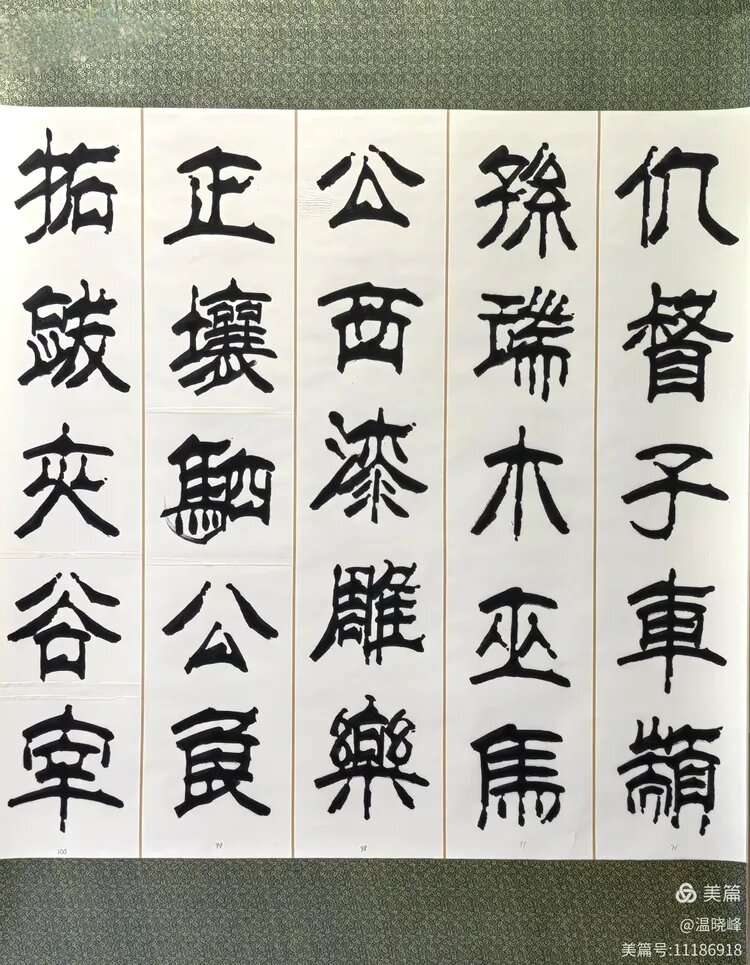 仉督子車顓
孫端木巫馬
公西漆雕樂
正壤駟公良
拓跋夾谷宰
96
97
98
99
100
美篇
@温晓峰
美篇号:11186918